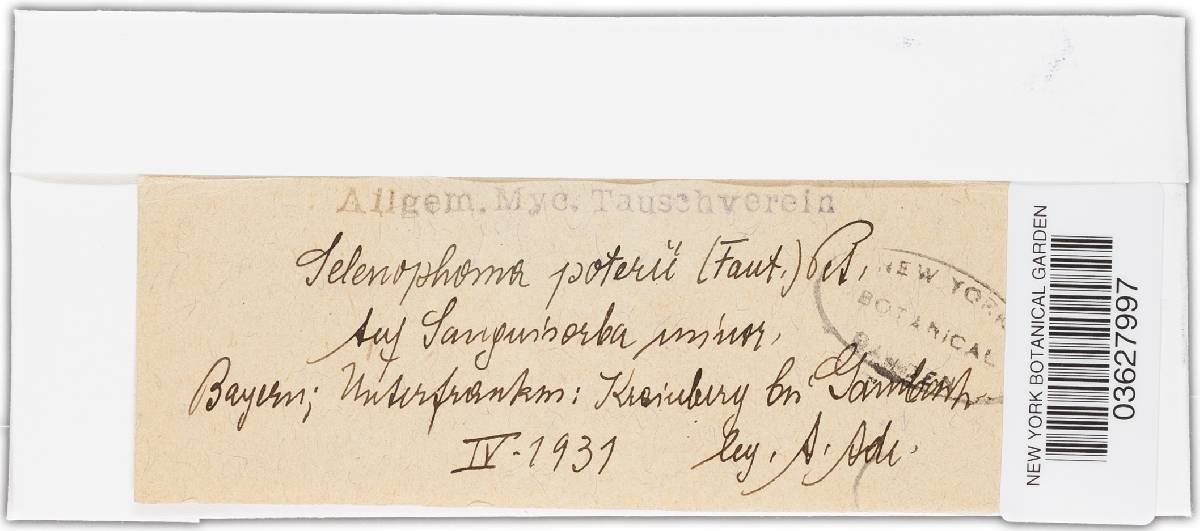 Allgem. Myc. Tauschverein
Selenophoma poterii (Faut.) Pet.
Auf Sanguisorba minor.
Bayern; Unterfranken: Krainberg bei Gambach
IV-1931 leg. A. Ade.
NEW YORK
BOTANICAL
GARDEN
NEW YORK BOTANICAL GARDEN
03627997